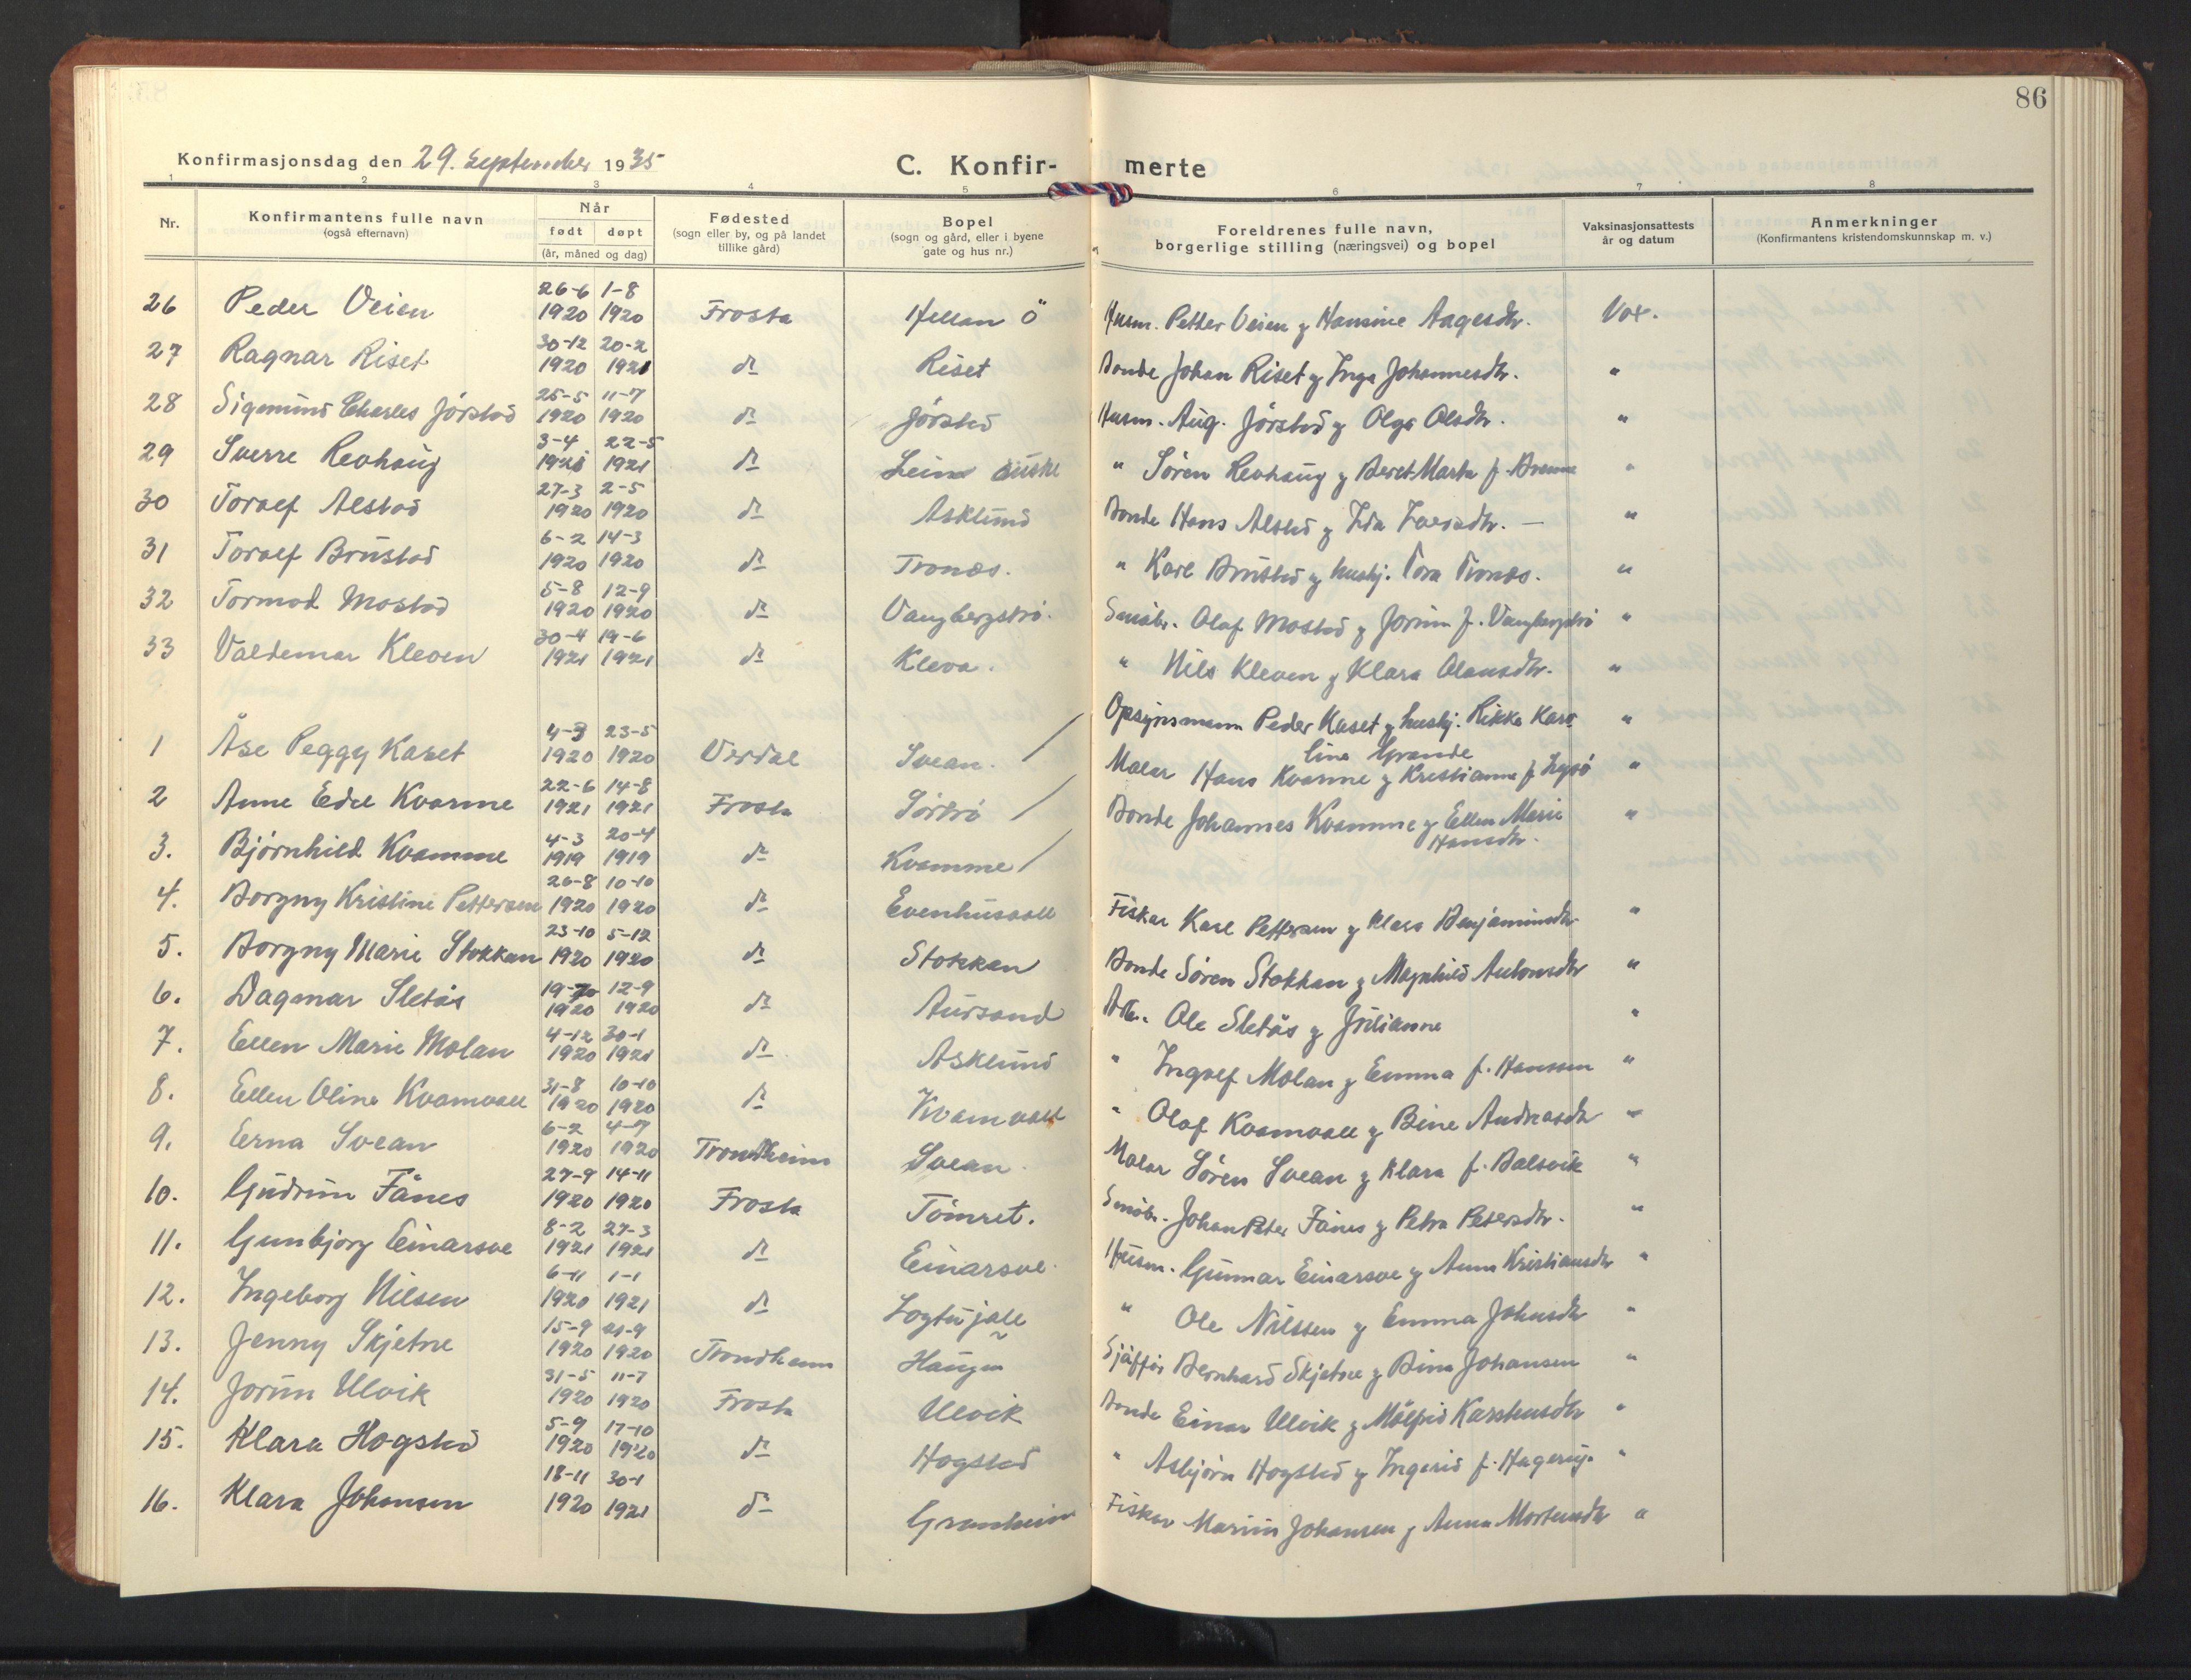 86
Konfirmasjonsdag den 29. September 1935
C. Konfir- merte
1 2 3 4 5 6 7 8
Nr. Konfirmantens fulle navn (også efternavn) Når født døpt (år, måned og dag) Fødested (sogn eller by, og på landet tillike gård) Bopel (sogn og gård, eller i byene gate og hus nr.) Foreldrenes fulle navn, borgerlige stilling (næringsvei) og bopel Vaksinasjonsattests år og datum Anmerkninger (Konfirmantens kristendomskunnskap m. v.)
26 Peder Veien 26-6 1920 1-8 1920 Frosta Hellan ö Husm. Petter Veien g Hansine Aagesdtr. Vax.
27 Ragnar Riset 30-12 1920 20-2 1921 do Riset Bonde Johan Riset g Inga Johannesdtr. "
28 Sigmund Charles Jörstad 25-5 1920 11-7 1920 do Jörstad Husm. Aug. Jörstad g Olga Olsdtr. "
29 Sverre Revhaug 3-4 1921 22-5 1921 do Lein " Sören Revhaug g Beret Marta f. "
30 Toralf Alstad 27-3 1920 2-5 1920 do Asklund Bonde Hans Alstad g Ida — "
31 Toralf Brustad 6-2 1920 14-3 1920 do Tronæs. " Karl Brustad g hushj. Tora Tronæs. "
32 Tormod Mostad 5-8 1920 12-9 1920 do Vangbergströ. Småbr. Olaf Mostad g Jorun f. Vangbergströ "
33 Valdemar Kleven 30-4 1921 19-6 1921 do Kleva. " Nils Kleven g Klara Olausdtr. "
1 Åse Peggy Kaset 4-3 1920 23-5 1920 Verdal Svean. / Opsynsmann Peder Kaset g hushj. Rikka Karo line Grande "
2 Anne Edel Kvarme 22-6 1921 14-8 1921 Frosta Sörtrö / Maler Hans Kvarme g Kristianna f. "
3. Bjørnhild Kvamme 4-3 1919 20-4 1919 do Kvamme / Bonde Johannes Kvamme g Ellen Marie Hansdtr. "
4. Borgny Kristine Pettersen 26-8 1920 10-10 1920 do Evenhusvall Fisker Karl Pettersen g Klara Benjaminsdtr "
5. Borgny Marie Stokkan 23-10 1920 5-12 1920 do Stokkan Bonde Sören Stokkan g Magnhild Antonsdtr "
6. Dagmar Sletås 1920 12-9 1920 do Aursand Arb. Ole Sletås g Julianne "
7. Ellen Marie Molan 4-12 1920 30-1 1921 do Asklund " Ingolf Molan g Emma f. Hanssen "
8. Ellen Oline Kvamvall 31-8 1920 10-10 1920 do Kvamvall " Olaf Kvamvall g Bine Andreasdtr "
9. Erna Svean 6-2 1920 4-7 1920 Trondheim Svean. Maler Sören Svean g Klara f. Balsvik "
10. Gudrun Fånes 27-9 1920 14-11 1920 Frosta Tömret. Småbr. Johan Peter Fånes g Petra Petersdtr. "
11. Gunbjörg Einarsve 8-2 1921 27-3 1921 do Einarsve. Husm. Gunnar Einarsve g Anna Kristiansdtr "
12. Ingeborg Nilsen 6-11 1920 1-1 1921 do Logtujale " Ole Nilssen g Emma Johnsdtr "
13. Jenny Skjetne 15-9 1920 21-9 1920 Trondheim Haugen Sjåffør Bernhard Skjetne g Bina Johansen "
14. Jorun Ulvik 31-5 1920 11-7 1920 Frosta Ulvik Bonde Einar Ulvik g Målfrid Karstensdtr "
15. Klara Hogstad 5-9 1920 17-10 1920 do Hogstad " Asbjørn Hogstad g Ingerid f. Hagerup. "
16. Klara Johansen 18-11 1920 30-1 1921 do Granheim Fisker Marius Johansen g Anna Mortensdtr "